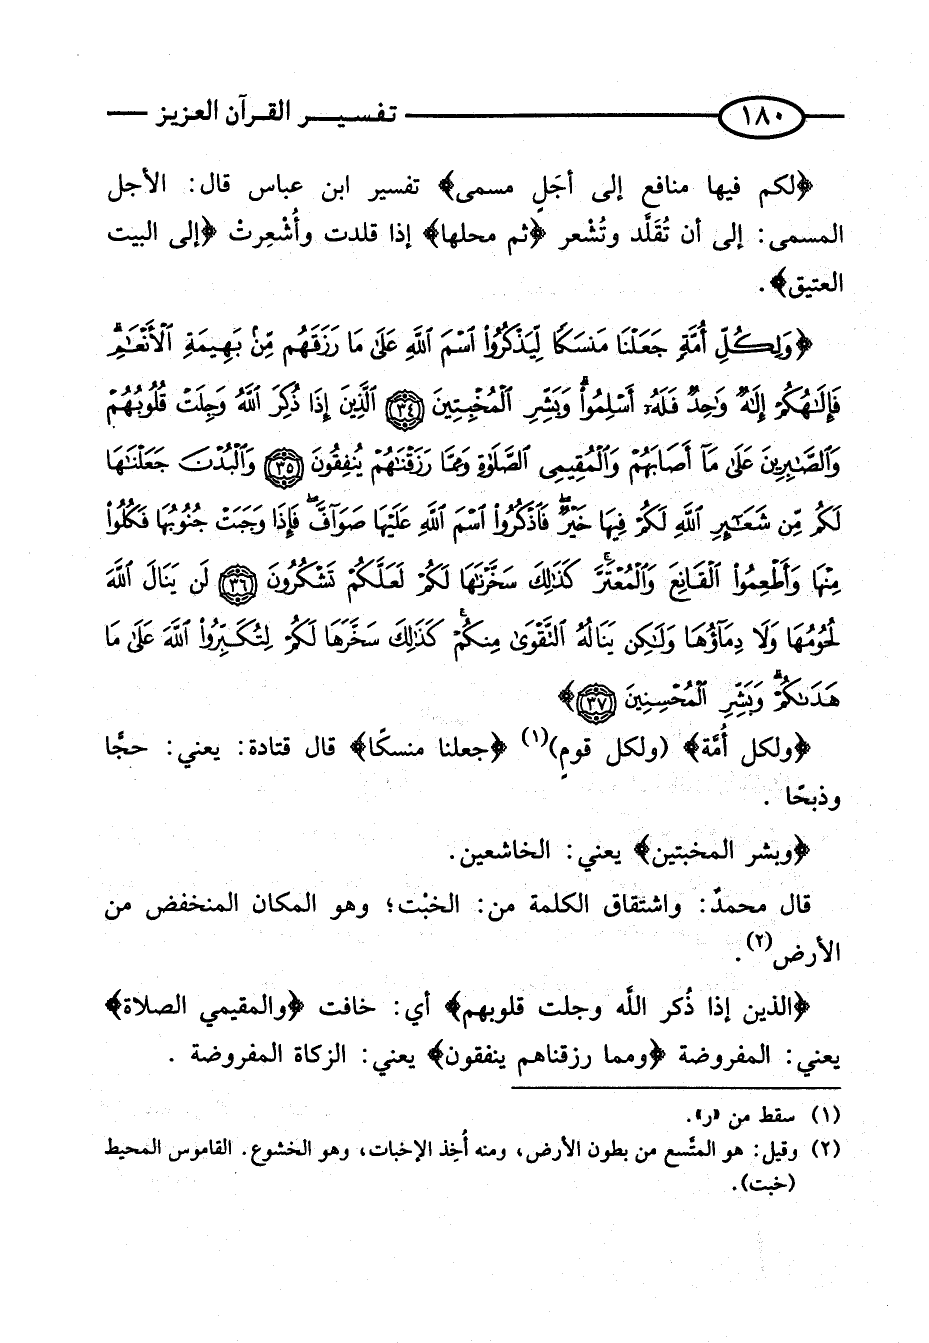 ١٨٠ تفسير القرآن العزيز
﴿لكم فيها منافع إلى أجَلٍ مسمى﴾ تفسير ابن عباس قال: الأجل
المسمى: إلى أن تُقَلَّد وتُشْعر ﴿ثم محلها﴾ إذا قلدت وأُشْعِرتْ ﴿إلى البيت
العتيق﴾.
﴿وَلِكُلِّ أُمَّةٍ جَعَلْنَا مَنسَكًا لِّيَذْكُرُوا۟ ٱسْمَ ٱللَّهِ عَلَىٰ مَا رَزَقَهُم مِّنۢ بَهِيمَةِ ٱلْأَنْعَـٰمِۗ
فَإِلَـٰهُكُمْ إِلَـٰهٌ وَٰحِدٌ فَلَهُۥٓ أَسْلِمُوا۟ۗ وَبَشِّرِ ٱلْمُخْبِتِينَ ٣٤ ٱلَّذِينَ إِذَا ذُكِرَ ٱللَّهُ وَجِلَتْ قُلُوبُهُمْ
وَٱلصَّـٰبِرِينَ عَلَىٰ مَآ أَصَابَهُمْ وَٱلْمُقِيمِى ٱلصَّلَوٰةِ وَمِمَّا رَزَقْنَـٰهُمْ يُنفِقُونَ ٣٥ وَٱلْبُدْنَ جَعَلْنَـٰهَا
لَكُم مِّن شَعَـٰٓئِرِ ٱللَّهِ لَكُمْ فِيهَا خَيْرٌۖ فَٱذْكُرُوا۟ ٱسْمَ ٱللَّهِ عَلَيْهَا صَوَآفَّۖ فَإِذَا وَجَبَتْ جُنُوبُهَا فَكُلُوا۟
مِنْهَا وَأَطْعِمُوا۟ ٱلْقَانِعَ وَٱلْمُعْتَرَّۚ كَذَٰلِكَ سَخَّرْنَـٰهَا لَكُمْ لَعَلَّكُمْ تَشْكُرُونَ ٣٦ لَن يَنَالَ ٱللَّهَ
لُحُومُهَا وَلَا دِمَآؤُهَا وَلَـٰكِن يَنَالُهُ ٱلتَّقْوَىٰ مِنكُمْۚ كَذَٰلِكَ سَخَّرَهَا لَكُمْ لِتُكَبِّرُوا۟ ٱللَّهَ عَلَىٰ مَا
هَدَىٰكُمْۗ وَبَشِّرِ ٱلْمُحْسِنِينَ ٣٧﴾
﴿ولكل أُمَّة﴾ (ولكل قومٍ)(١) ﴿جعلنا منسكًا﴾ قال قتادة: يعني: حجًّا
وذبحًا .
﴿وبشر المخبتين﴾ يعني: الخاشعين.
قال محمدٌ: واشتقاق الكلمة من: الخبْت؛ وهو المكان المنخفض من
الأرض(٢).
﴿الذين إذا ذُكر اللَّه وجلت قلوبهم﴾ أي: خافت ﴿والمقيمي الصلاة﴾
يعني: المفروضة ﴿ومما رزقناهم ينفقون﴾ يعني: الزكاة المفروضة .
(١) سقط من «ر».
(٢) وقيل: هو المتَّسع من بطون الأرض، ومنه أُخِذ الإخبات، وهو الخشوع. القاموس المحيط
(خبت).